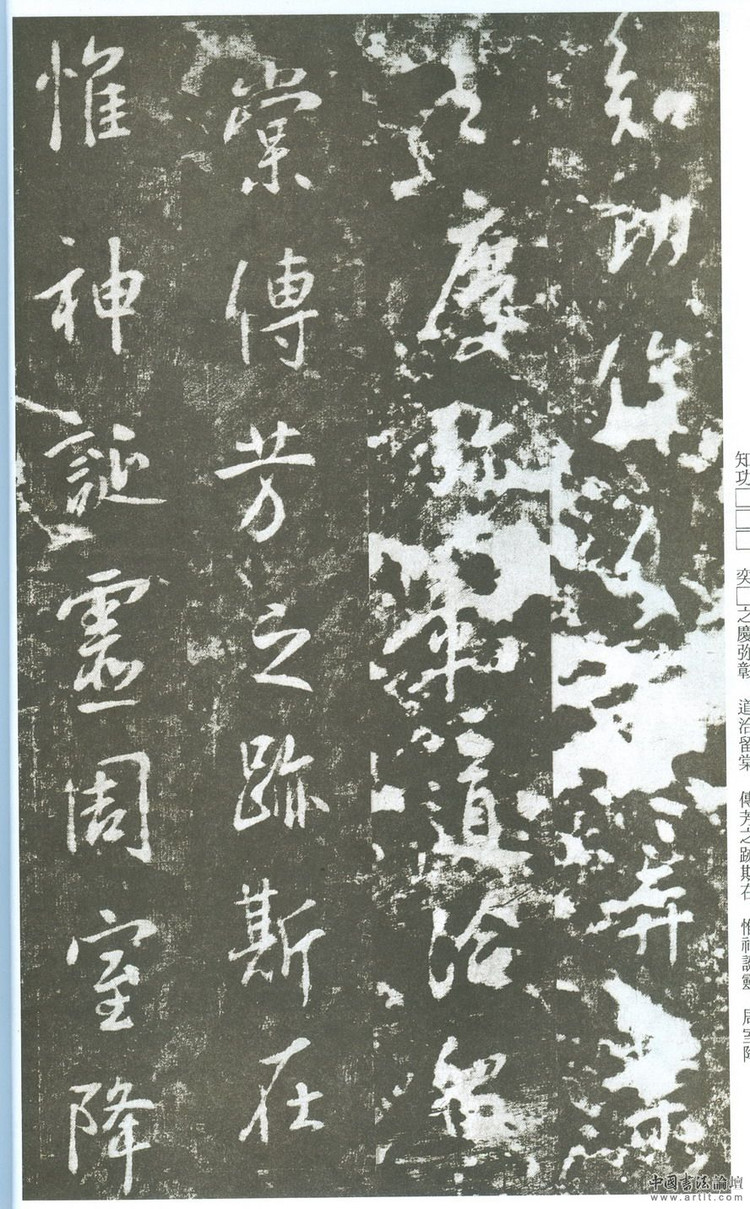 知功奕
之慶弥彰道洽留
棠傳芳之跡斯在
惟神誕靈周室降
知功□□□ 奕□之慶弥彰 道洽留棠 傳芳之跡斯在 惟神誕靈 周室降
中國書法論壇
www.artit.com